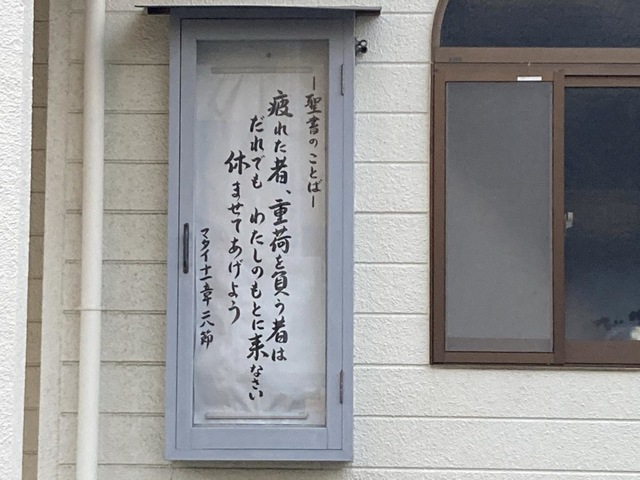 ー聖書のことばー
疲れた者、重荷を負う者は
だれでも わたしのもとに来なさい
休ませてあげよう
マタイ十一章二八節